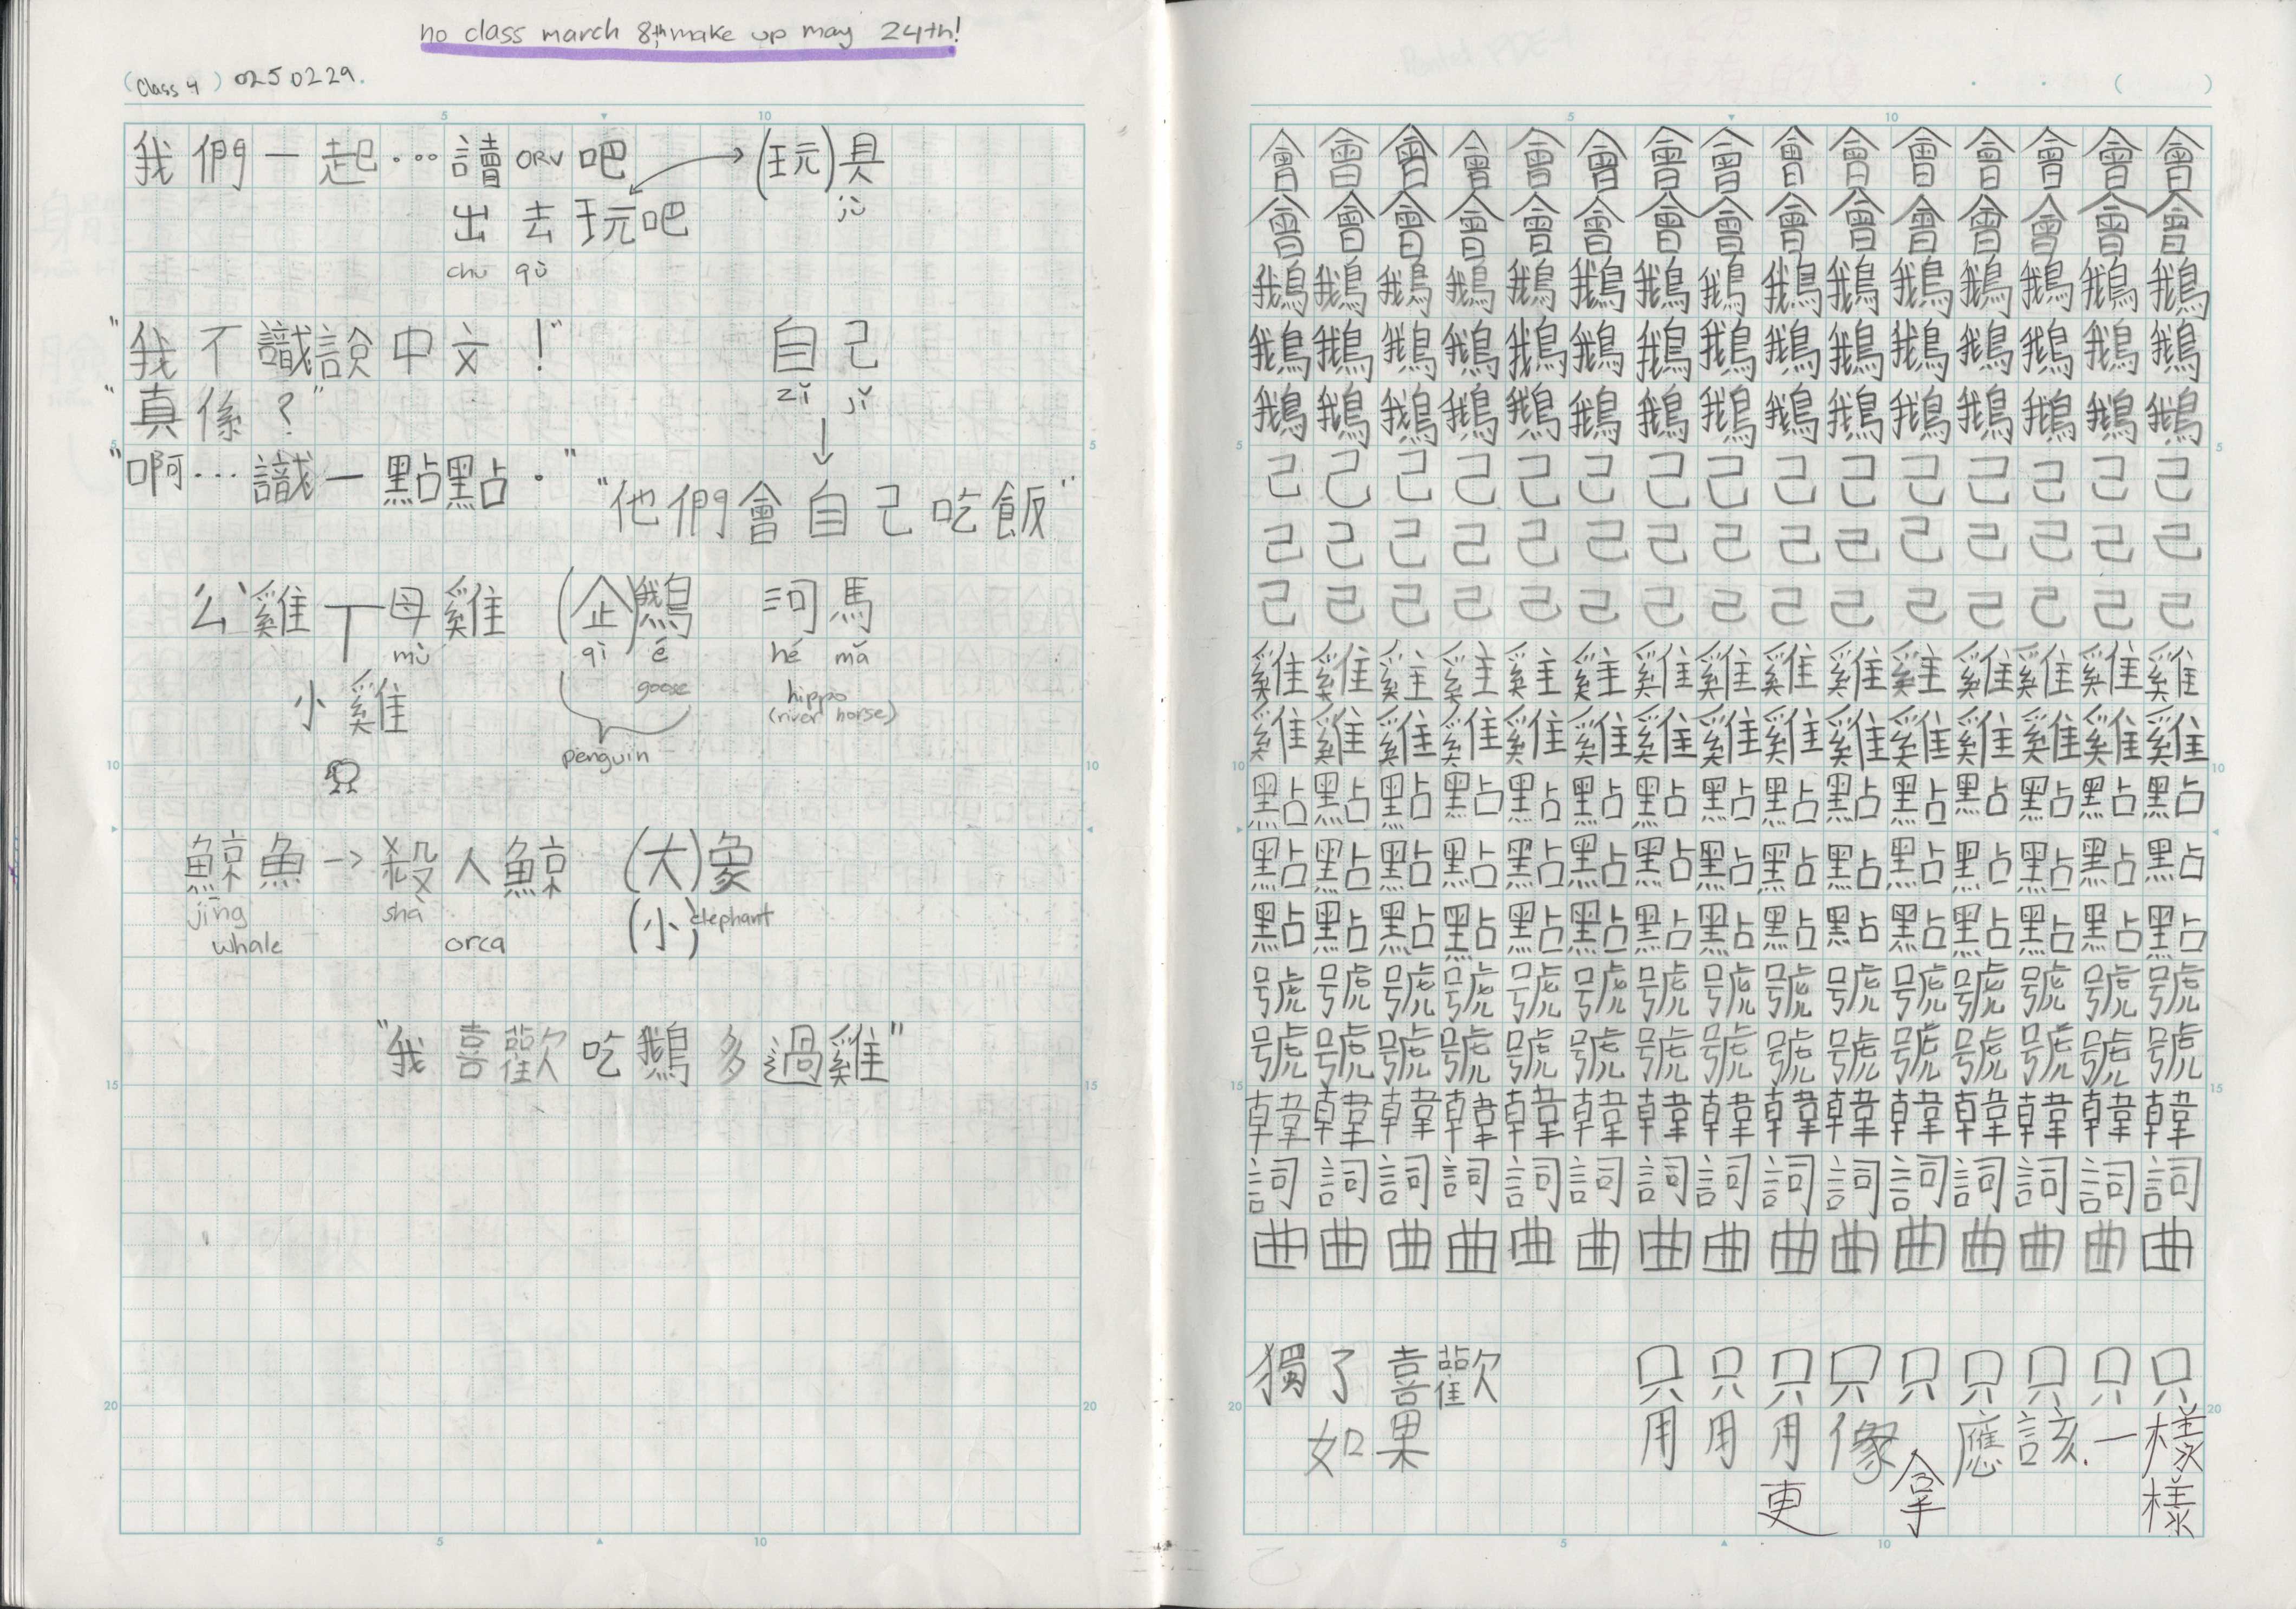 no class march 8th, make up may 24th!
(Class 4) 0250229.
我們一起…讀 ORV 吧 (玩)具
jù
出去玩吧
chū qù
"我不識說中文！" 自己
zì jǐ
"真係？"
"啊…識一點點." "他們會自己吃飯"
公雞 母雞 (企)鵝 河馬
mǔ qì é hé mǎ
小雞 goose hippo
(river horse)
penguin
鯨魚→殺人鯨 (大)象
jīng shā (小) elephant
whale orca
"我喜歡吃鵝多過雞"
5 10
5 10 15 20
5 10
5 10
會會會會會會會會會會會會會會會
會會會會會會會會會會會會會會會
鵝鵝鵝鵝鵝鵝鵝鵝鵝鵝鵝鵝鵝鵝鵝
鵝鵝鵝鵝鵝鵝鵝鵝鵝鵝鵝鵝鵝鵝鵝
鵝鵝鵝鵝鵝鵝鵝鵝鵝鵝鵝鵝鵝鵝鵝
己己己己己己己己己己己己己己己
己己己己己己己己己己己己己己己
己己己己己己己己己己己己己己己
雞雞雞雞雞雞雞雞雞雞雞雞雞雞雞
雞雞雞雞雞雞雞雞雞雞雞雞雞雞雞
點點點點點點點點點點點點點點點
點點點點點點點點點點點點點點點
點點點點點點點點點點點點點點點
號號號號號號號號號號號號號號號
號號號號號號號號號號號號號號號
韓韓韓韓韓韓韓韓韓韓韓韓韓韓韓
詞詞詞詞詞詞詞詞詞詞詞詞詞詞詞
曲曲曲曲曲曲曲曲曲曲曲曲曲曲曲
獨了喜歡 只只只只只只只只只
如果 用用用像 應該.一樣
更 拿 樣
5 10 15 20
5 10